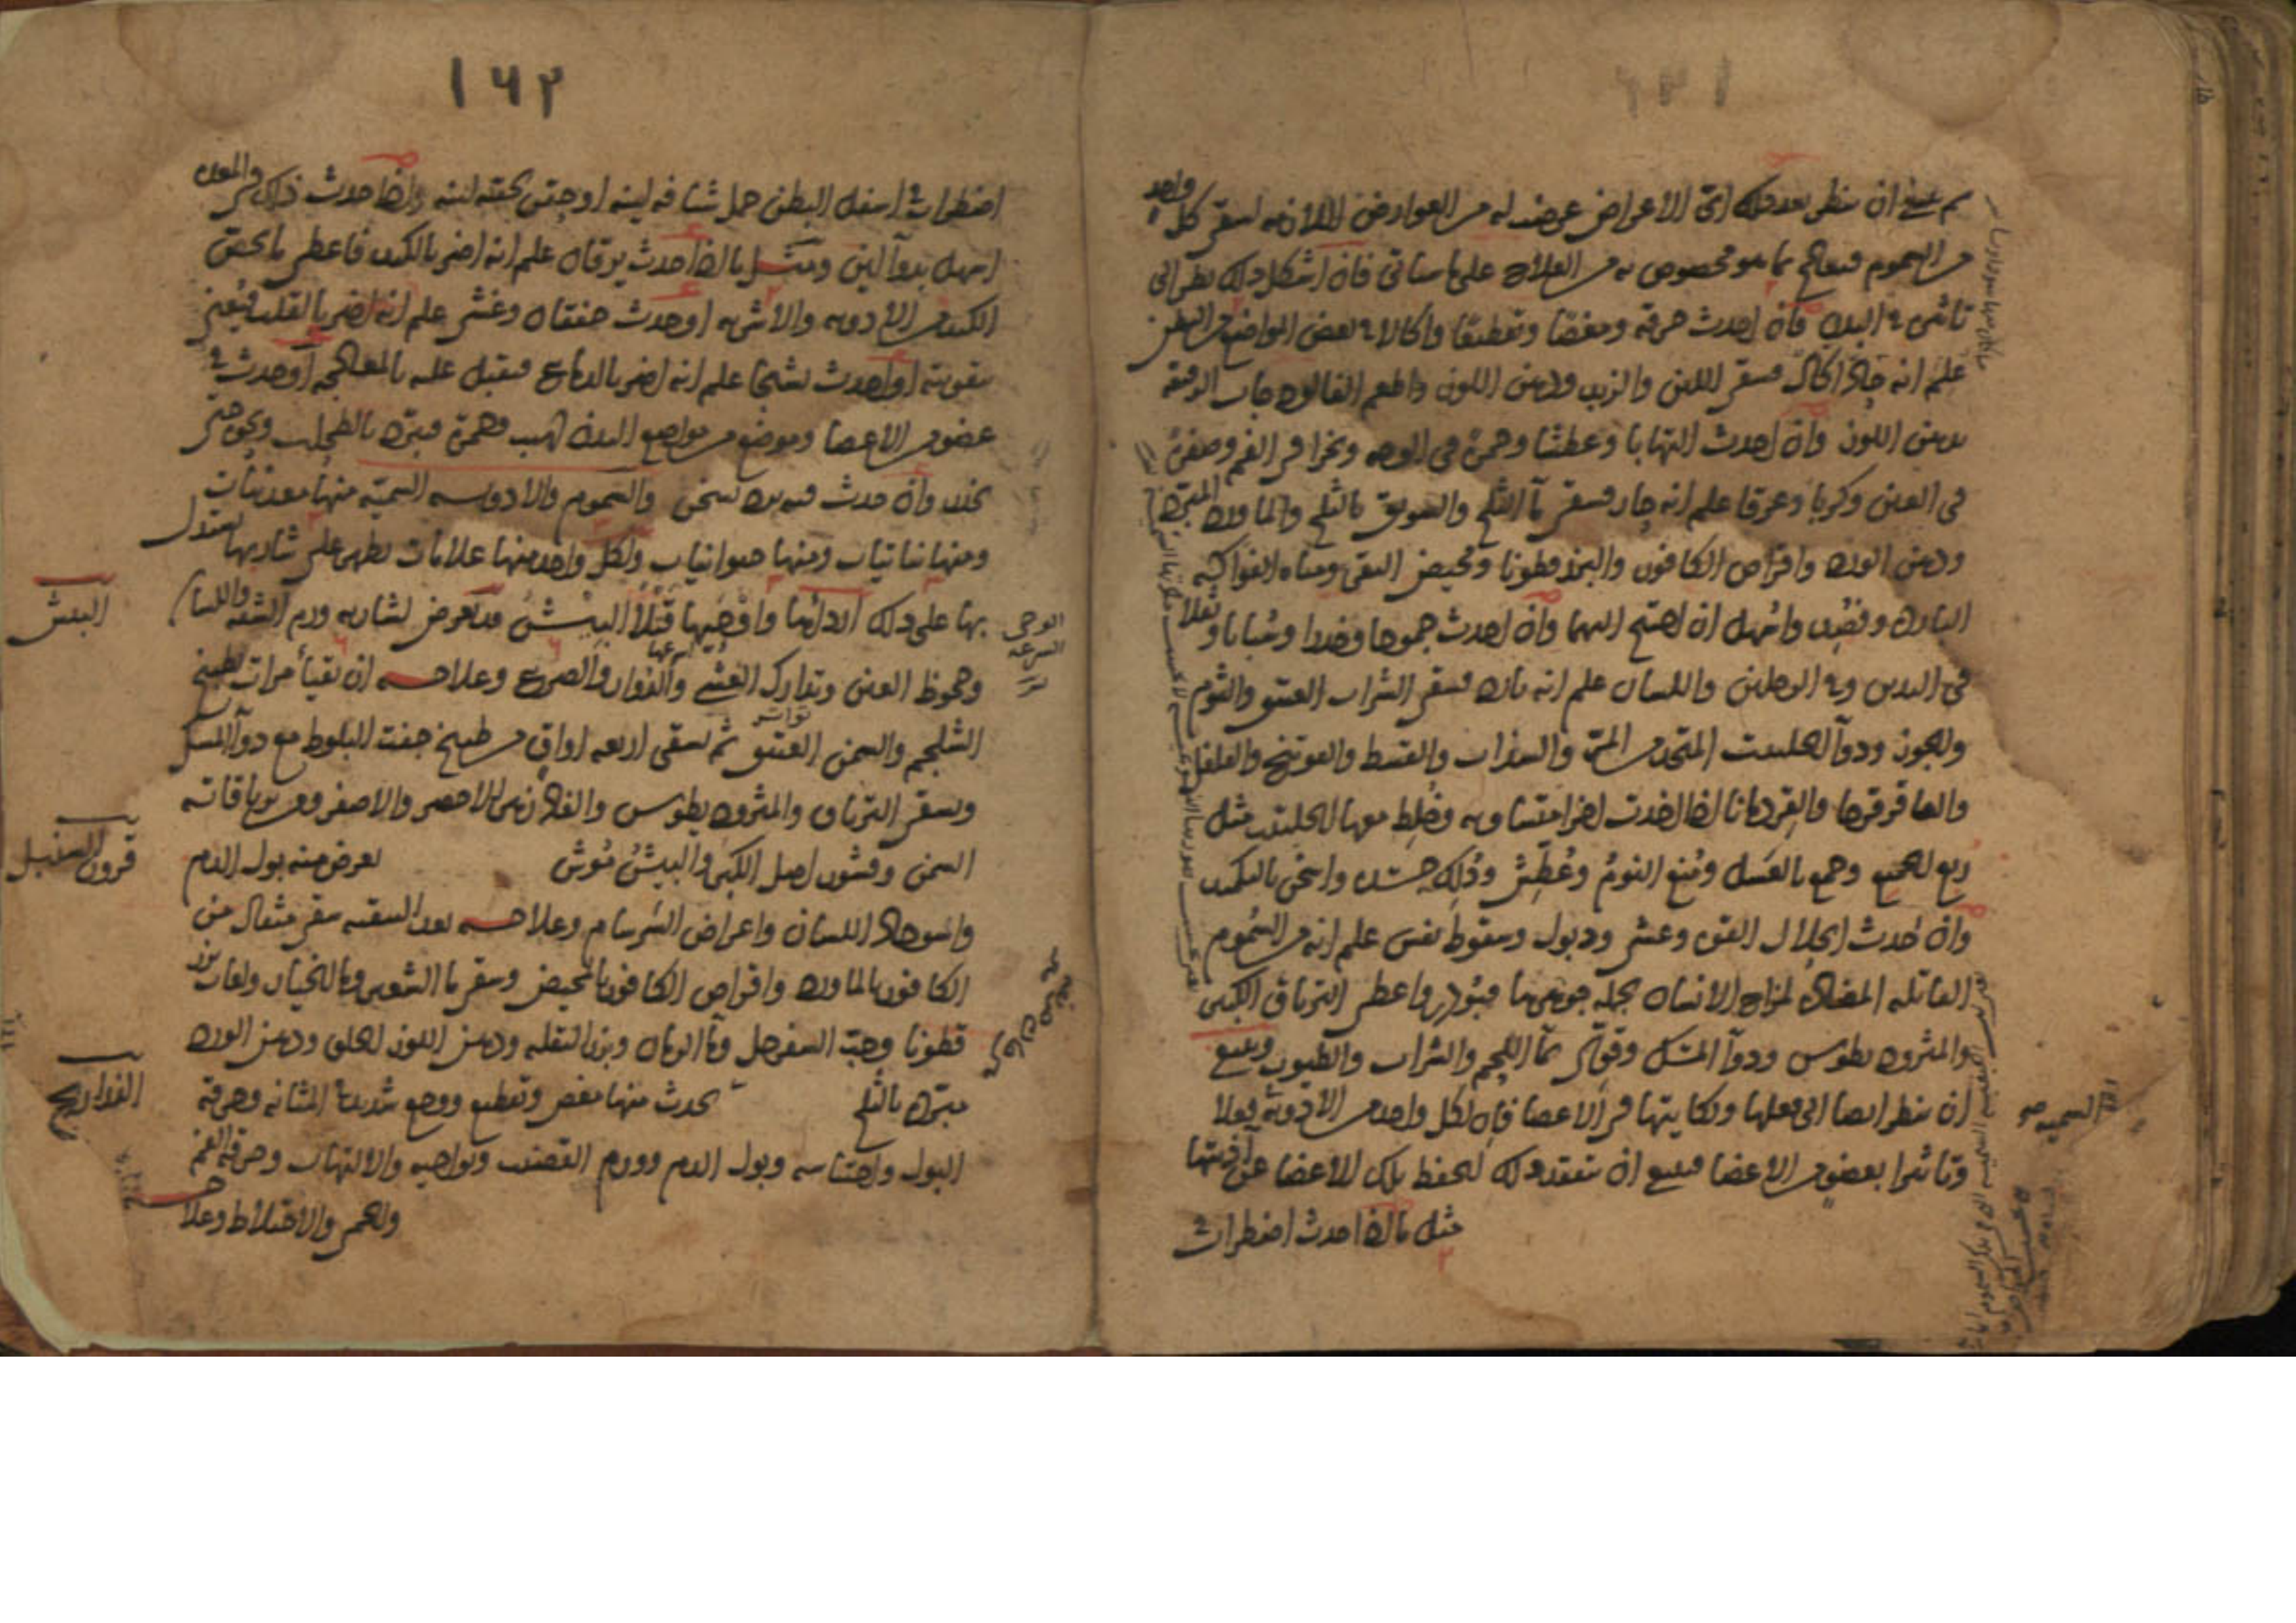 ثم ينبغي ان ينظر بعد ذلك اى الاعراض عرضت له من العوارض اللازمه لسقى كل واحد
من السموم فيعالج بما هو مخصوص به من العلاج على ما سياتى فان اشكل ذلك نظر الى
تاثيره في البدن فان احدث حرقه ومغصا وتقطيعا واكالا في بعض المواضع من البطن
علم انه حاد اكال فيسقى اللبن والزبد ودهن اللوز واطعم الفالوذجات الرقيقه
بدهن اللوز وان احدث التهابا وعطشا وحمرة فى الوجه وبخرا فى الفم وصفرة
فى العين وكربا وعرقا علم انه حار فيسقى ماء الثلج والسويق بالثلج والماورد المبرد
ودهن الورد واقراص الكافور والبزرقطونا ومخيض البقر ومياه الفواكه
الباردة وفصد واسهل ان احتيج اليهما وان احدث جمودا وخدرا وسباتا وثقلا
فى اليدين وفي الرجلين واللسان علم انه بارد فيسقى الشراب العتيق والثوم
والجوز ودواء الحلتيت المتخذ من المر والسذاب والقسط والفوتنج والفلفل
والعاقرقرحا والقردمانا اذا اخذت اجزا متساويه وخلط معها الحلتيت مثل
ربع الجميع وجمع بالعسل ومنع النوم وعطش ودلك جسده واسخن بالتكميد
وان احدث انحلال القوى وغشى وذبول وسقوط نفس علم انه من السموم
القاتله المضاده لمزاج الانسان بجمله جوهرها فيبودر واعطى الترياق الكبير
والمثروديطوس ودواء المسك وقوى بماء اللحم والشراب والطيوب وينبغى
ان ينظر ايضا الى فعلها ونكايتها فى الاعضا فان لكل واحد من الادوية فعلا
وتاثيرا بعضو من الاعضا فينبغى ان تتفقد ذلك لتحفظ تلك الاعضا عن اذيتها
مثل ما اذا احدث اضطرابا في
السميه
١٦٢
اضطرابا في اسفل البطن حمل شيافه لينه او حقن بحقنه لينه واذا حدث ذلك فى المعده
اسهل بدواء لين ومثل ما اذا احدث يرقان علم انه اضر بالكبد فاعطى ما يخص
الكبد من الادويه والاشربه او حدث خفقان وغشى علم انه اضر بالقلب فيعنى
بتقويته او احدث تشنجا علم انه اضر بالدماغ فيقبل عليه بالمعالجه او حدث في
عضو من الاعضا وموضع من مواضع البدن لهيب وحمرة فيبرد بالطحلب ونحوه حتى
يخدر وان حدث فيه برد يسخن والسموم والادويه السميه منها معدنيات
ومنها نباتيات ومنها حيوانيات ولكل واحد منها علامات تظهر على شاربها يستدل
بها على ذلك اردائها واوحيها قتلا البيش قد تعرض لشاربه ورم الشفه واللسان
اسرعها
وجحوظ العين وتدارك الغشى والدوار والصرع وعلاجه ان تقيأ مرات بطبيخ
تواتر
الشلجم والسمن العتيق ثم يسقى اربعه اواق من طبيخ جفت البلوط مع دواء المسك
ويسقى الترياق والمثروديطوس والفلازهر الاحمر والاصفر ومن ترياقاته
السمن وقشور اصل الكبر والبيش موش يعرض منه بول الدم
واسوداد اللسان واعراض السرسام وعلاجه بعد التنقيه سقى مثقال من
الكافور بالماورد واقراص الكافور بالمخيض وسقى ماء الشعير وماء الخيار ولعاب بزر
قطونا وحب السفرجل وماء الرمان وبزر البقله ودهن اللوز الحلو ودهن الورد
مبرد بالثلج يحدث منها مغص وتقطيع ووجع شديد في المثانه وحرقة
البول واحتباسه وبول الدم وورم القضيب ونواحيه والالتهاب وحرقة الفم
والحمى والاختلاط وعلاجه
البيش
قرون السنبل
الذراريح
الوحى
السرعه